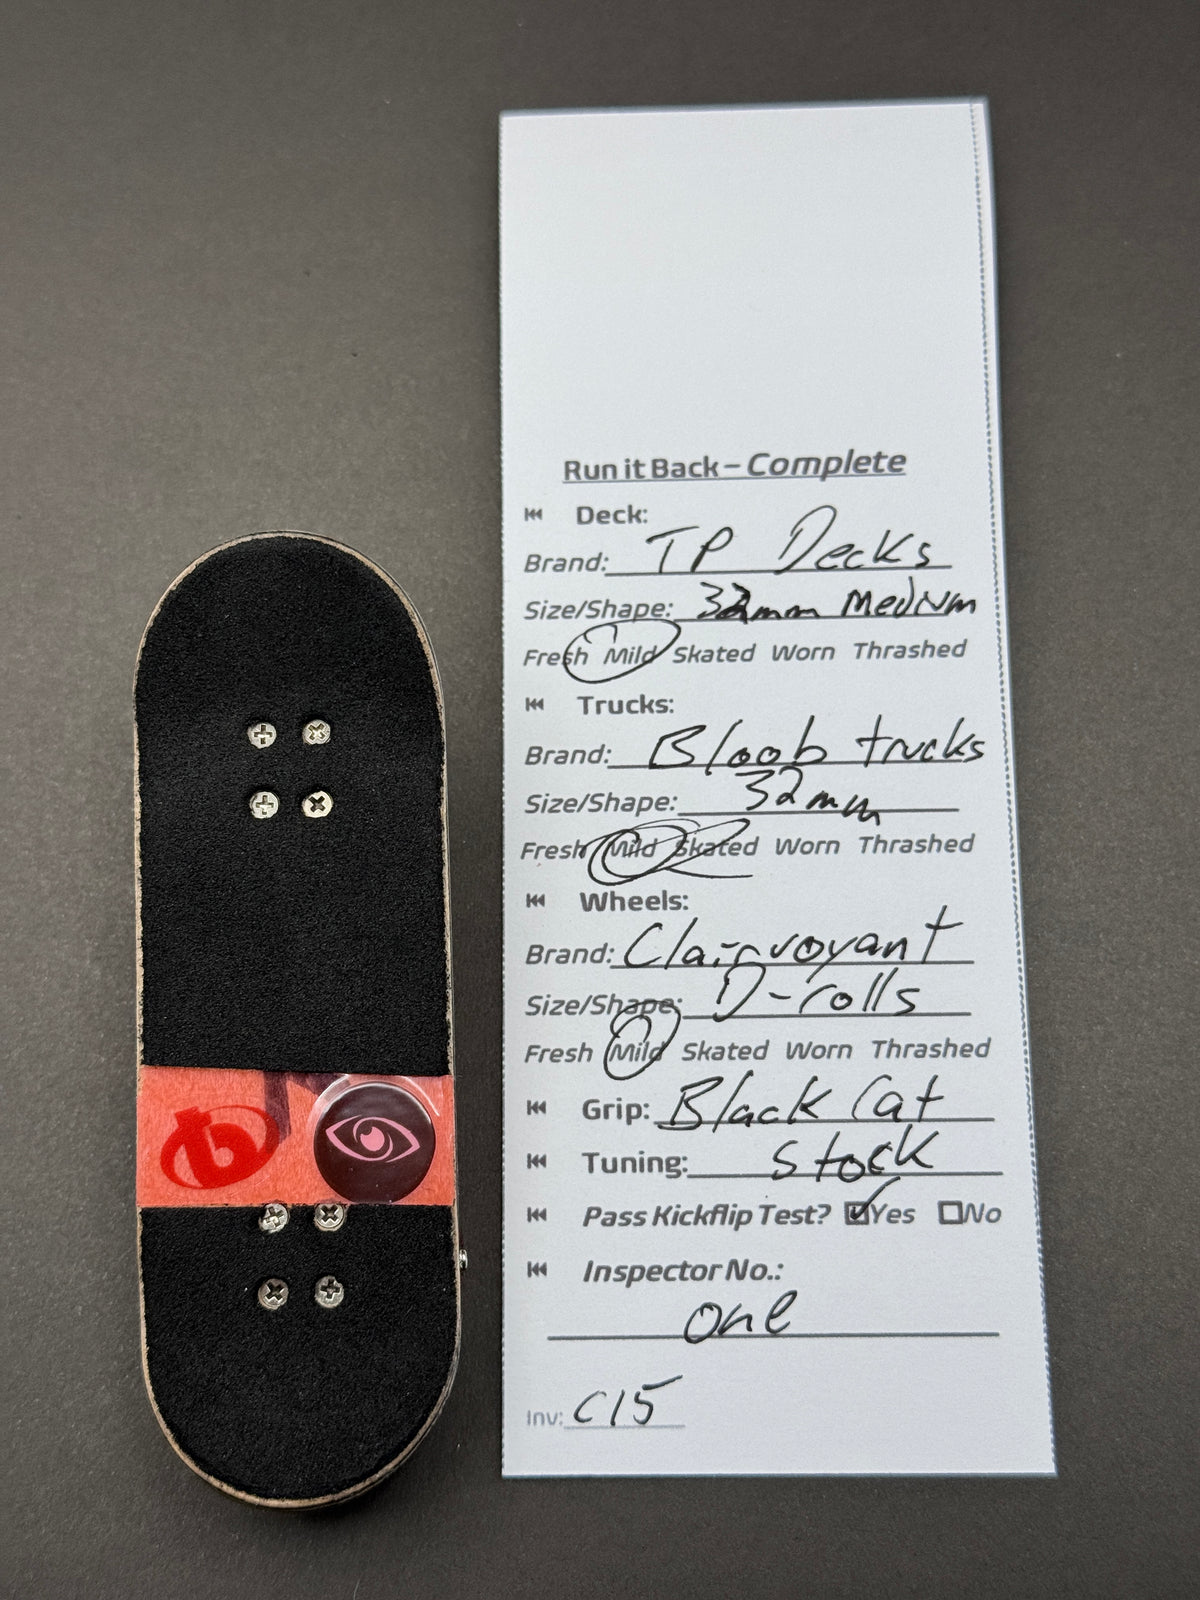 Run it Back – Complete
Deck:
Brand: TP Decks
Size/Shape: 32mm Medium
Fresh Mild Skated Worn Thrashed
Trucks:
Brand: Bloob trucks
Size/Shape: 32mm
Fresh Mild Skated Worn Thrashed
Wheels:
Brand: Clairvoyant
Size/Shape: D-rolls
Fresh Mild Skated Worn Thrashed
Grip: Black Cat
Tuning: stock
Pass Kickflip Test? Yes No
Inspector No.:
one
Inv: C15
b